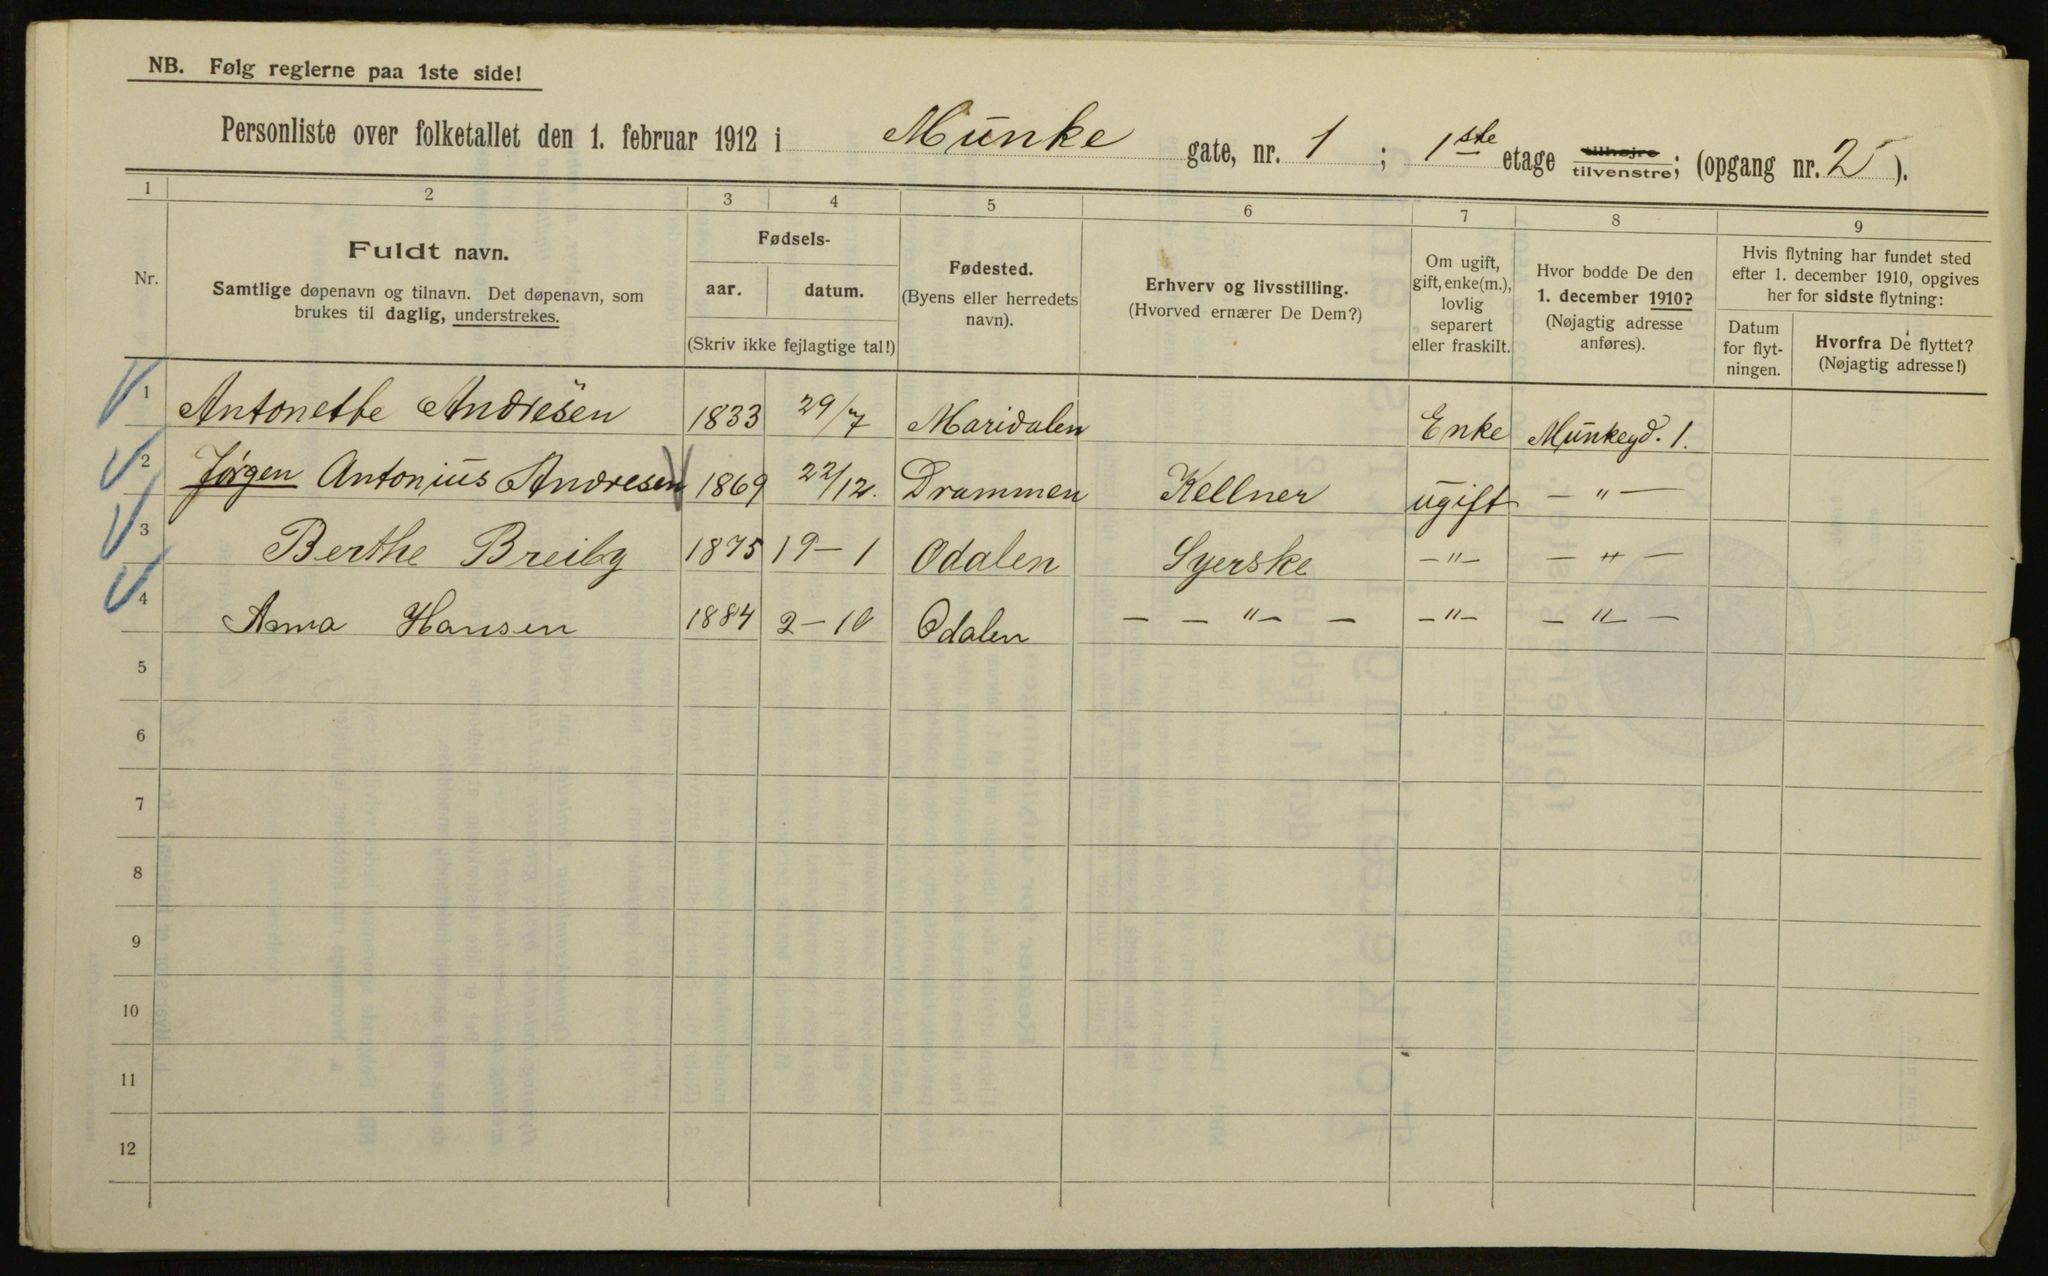 NB. Følg reglerne paa 1ste side!
Personliste over folketallet den 1. februar 1912 i Munke gate, nr. 1 ; 1ste etage tilhøjre tilvenstre; (opgang nr. 2 ).
1 2 3 4 5 6 7 8 9
Nr.
Fuldt navn.
Samtlige døpenavn og tilnavn. Det døpenavn, som
brukes til daglig, understrekes.
Fødsels-
aar. datum.
(Skriv ikke fejlagtige tal!)
Fødested.
(Byens eller herredets
navn).
Erhverv og livsstilling.
(Hvorved ernærer De Dem?)
Om ugift,
gift, enke(m.),
lovlig
separert
eller fraskilt.
Hvor bodde De den
1. december 1910?
(Nøjagtig adresse
anføres).
Hvis flytning har fundet sted
efter 1. december 1910, opgives
her for sidste flytning:
Datum
for flyt-
ningen.
Hvorfra De flyttet?
(Nøjagtig adresse!)
1 Antonette Andresen 1833 29/7 Maridalen Enke Munkegd. 1.
2 Jørgen Antonius Andresen 1869 22/12. Drammen Kellner ugift — " —
3 Berthe Breiby 1875 19 – 1 Odalen Syerske – " – — " —
4 Anna Hansen 1884 2 – 10 Odalen — — " — — – " – — " —
5
6
7
8
9
10
11
12